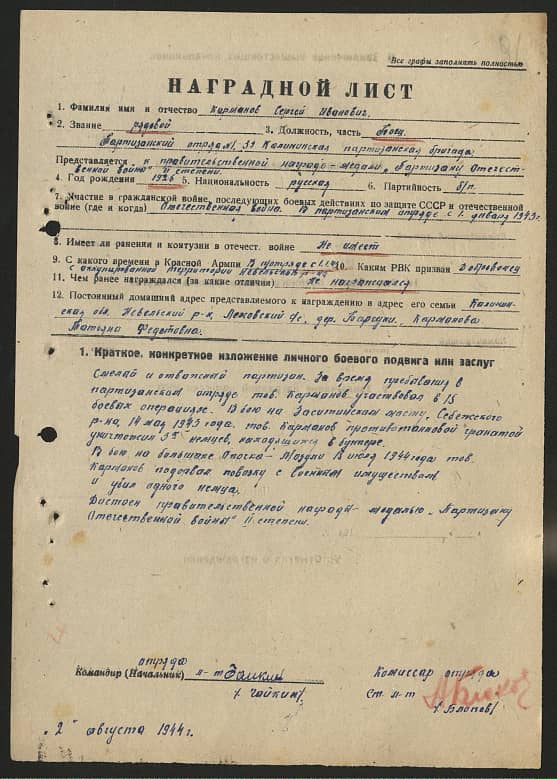 Все графы заполнять полностью
НАГРАДНОЙ ЛИСТ
1. Фамилия имя и отчество Карманов Сергей Иванович.
2. Звание рядовой 3. Должность, часть Боец.
Партизанский отряд №1. 3й Калининская партизанская бригада
Представляется к правительственной награде-медали „Партизану Отечест-
венной войны" II степени.
4. Год рождения 1926 5. Национальность русская 6. Партийность б/п.
7. Участие в гражданской войне, последующих боевых действиях по защите СССР и отечественной
войне (где и когда) Отечественная война. В партизанском отряде с 1. января 1943г.
8. Имеет ли ранения и контузии в отечест. войне Не имеет
9. С какого времени в Красной Армии В п/отряде с 10. Каким РВК призван Доброволец
с оккупированной территории Невельский р-на
11. Чем ранее награждался (за какие отличия) Не награждался
12. Постоянный домашний адрес представляемого к награждению и адрес его семьи Калинин-
ская обл. Невельский р-н, с/с, дер. Карманова
Татьяна Федотовна.
1. Краткое, конкретное изложение личного боевого подвига или заслуг
Смелый и отважный партизан. За время пребывания в
партизанском отряде тов. Карманов участвовал в 15
боевых операциях. В бою на Заситинском мосту, Себежского
р-на, 14 мая 1943 года. тов. Карманов противотанковой гранатой
уничтожил 3х немцев, находящихся в бункере.
В бою на большаке Опочка-Мозули 13 июля 1944 года тов.
Карманов подорвал повозку с военным имуществом
и убил одного немца.
Достоен правительственной награды-медалью „Партизану
Отечественной войны" II степени.
отряда
Командир (Начальник) л-т Чайкин
/Чайкин/
Комиссар отряда
Ст. л-т
/Блохов/
„2" августа 1944г.